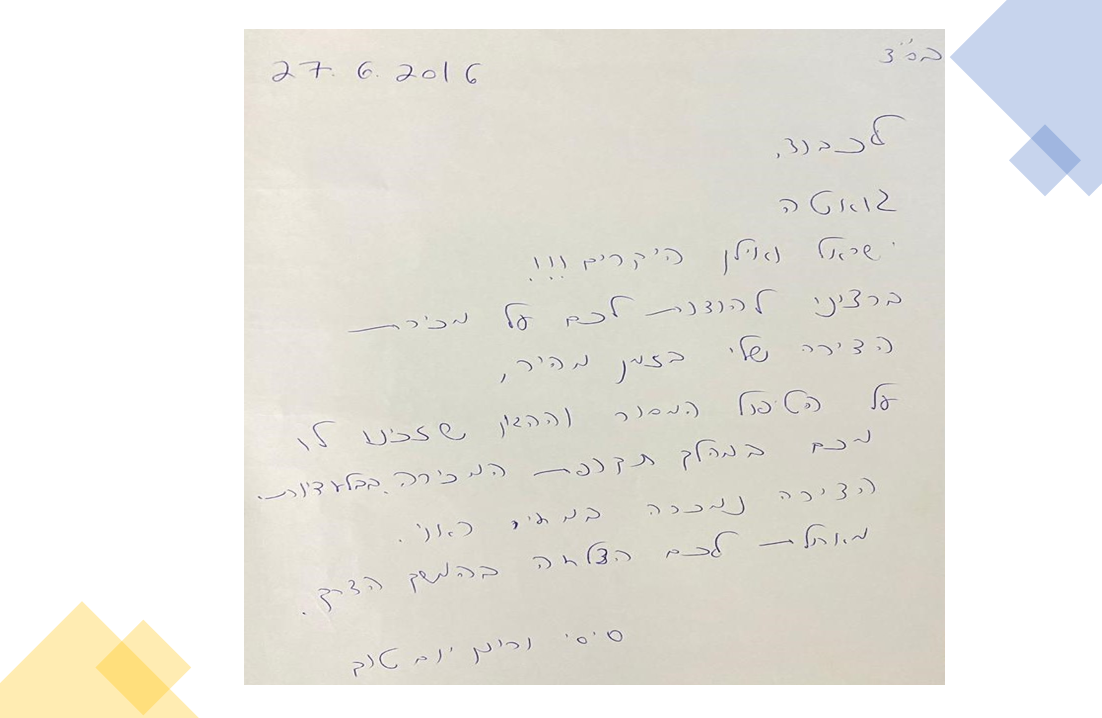 בס"ד
27.6.2016
לכבוד,
גואטה
ישראל ואילן היקרים!!!
ברציני להודות לכם על מכירת
הדירה שלי בזמן מהיר,
על הטיפול המסור וההגון שזכינו לו
מכם במהלך תקופת המכירה בבלעדיות.
הדירה נמכרה במחיר ראוי.
מאחלת לכם הצלחה בהמשך הדרך.
סיסי יום טוב